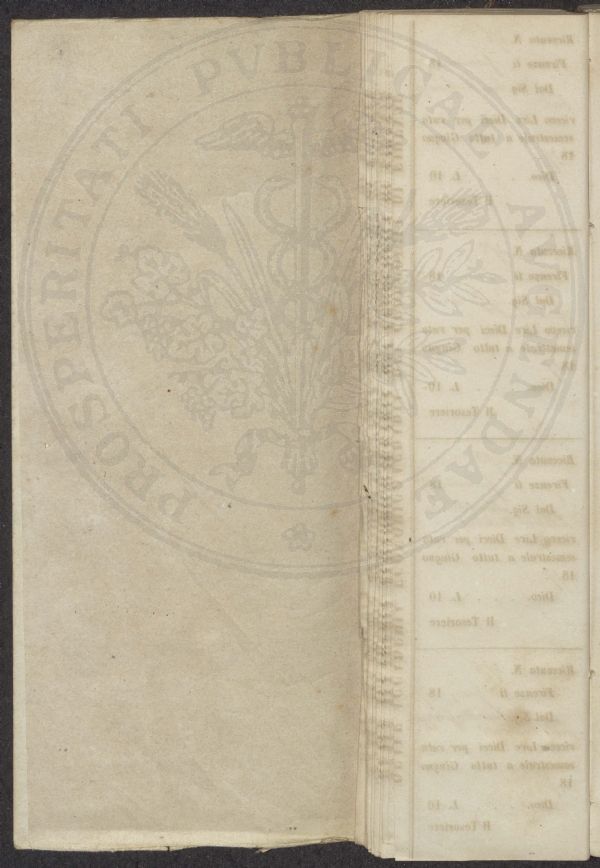 PROSPERITATI PVBLICAE AVGENDAE
Ricevuta N.
Firenze li 18
Dal Sig.
ricevo Lire Dieci per rata
semestrale a tutto Giugno
18
Dico. . . . L. 10
Il Tesoriere
Ricevuta N.
Firenze li 18
Dal Sig.
ricevo Lire Dieci per rata
semestrale a tutto Giugno
18
Dico. . . . L. 10
Il Tesoriere
Ricevuta N.
Firenze li 18
Dal Sig.
ricevo Lire Dieci per rata
semestrale a tutto Giugno
18
Dico. . . . L. 10
Il Tesoriere
Ricevuta N.
Firenze li 18
Dal Sig.
ricevo Lire Dieci per rata
semestrale a tutto Giugno
18
Dico. . . . L. 10
Il Tesoriere